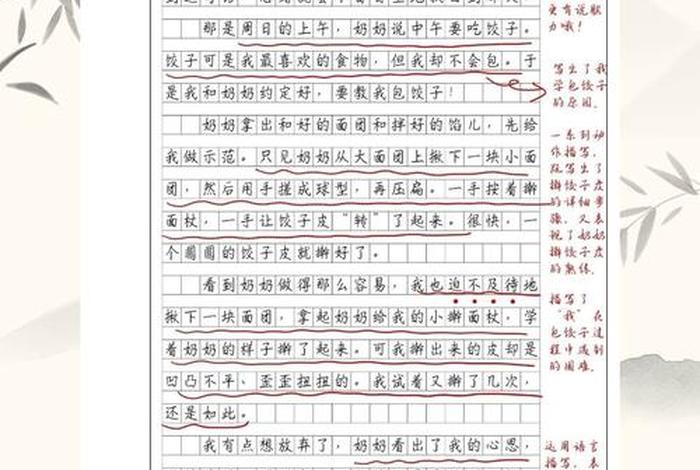 那是周日的上午，奶奶说中午要吃饺子。
饺子可是我最喜欢的食物，但我却不会包。于
是我和奶奶约定好，要教我包饺子！
奶奶拿出和好的面团和拌好的馅儿，先给
我做示范。只见奶奶从大面团上揪下一块小面
团，然后用手搓成球型，再压扁。一手按着擀
面杖，一手让饺子皮“转”了起来。很快，一
个圆圆的饺子皮就擀好了。
看到奶奶做得那么容易，我也迫不及待地
揪下一块面团，拿起奶奶给我的小擀面杖，学
着奶奶的样子擀了起来。可我擀出来的皮却是
凹凸不平、歪歪扭扭的。我试着又擀了几次，
还是如此。
我有点想放弃了，奶奶看出了我的心思，
更有说服
力哦！
写出了我
学包饺子
的原因。
一系列动
作描写，
既写出了
擀饺子皮
的详细步
骤，又表
现了奶奶
擀饺子皮
的熟练。
描写了
“我”在
包饺子过
程中遇到
的困难。
运用语言
描写，表